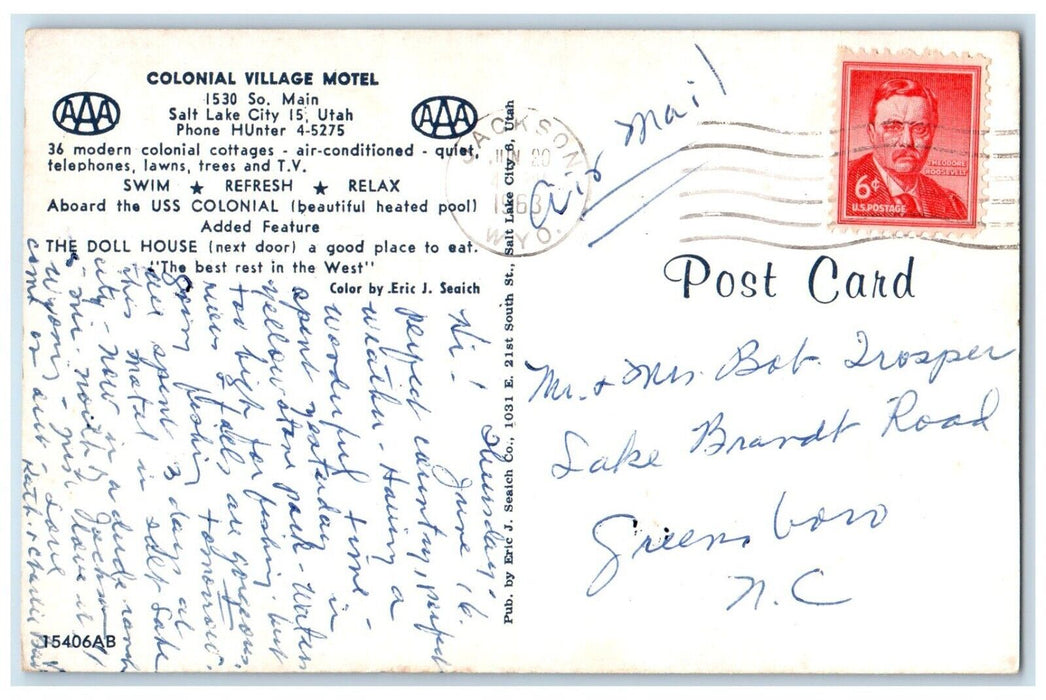 COLONIAL VILLAGE MOTEL
AAA
1530 So. Main
Salt Lake City 15, Utah
Phone HUnter 4-5275
AAA
36 modern colonial cottages - air-conditioned - quiet,
telephones, lawns, trees and T.V.
SWIM ★ REFRESH ★ RELAX
Aboard the USS COLONIAL (beautiful heated pool)
Added Feature
THE DOLL HOUSE (next door) a good place to eat.
"The best rest in the West"
Color by Eric J. Seaich
Thursday
June 16.
Hi!
Perfect country, perfect
weather - Having a
wonderful time -
spent yesterday in
Yellowstone park - Water
too high for fishing. but
rivers & falls are gorgeous.
Going fishing tomorrow.
We spent 3 days at
this motel in Salt Lake
city - Now in a dude ranch
- mi. north Jackson,
Wyoming - Love it
come on out - Love
15406AB
Pub. by Eric J. Seaich Co., 1031 E. 21st South St., Salt Lake City 6, Utah
JACKSON
JUN 20
1963
WYO.
Air Mail
THEODORE
ROOSEVELT
6¢
U.S. POSTAGE
Post Card
Mr. & Mrs. Bob Trosper
Lake Brandt Road
Greensboro
N.C